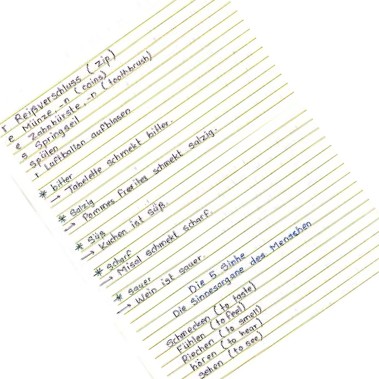 r Reißverschluss (zip)
e Münze -n (coins)
e Zahnbürste -n (toothbrush)
s Springseil
spülen
r Luftballon aufblasen
* bitter
→ Tabelette schmekt bitter.
* Salzig
→ Pommes frezites schmekt salzig.
* Süß
→ Kuchen ist süß.
* scharf
→ Misal schmekt scharf.
* sauer
→ Wein ist sauer.
Die 5 Sinne
Die Sinnesorgane des Menschen
Schmecken (to taste)
Fühlen (to feel)
Riechen (to smell)
hören (to hear)
sehen (to see)